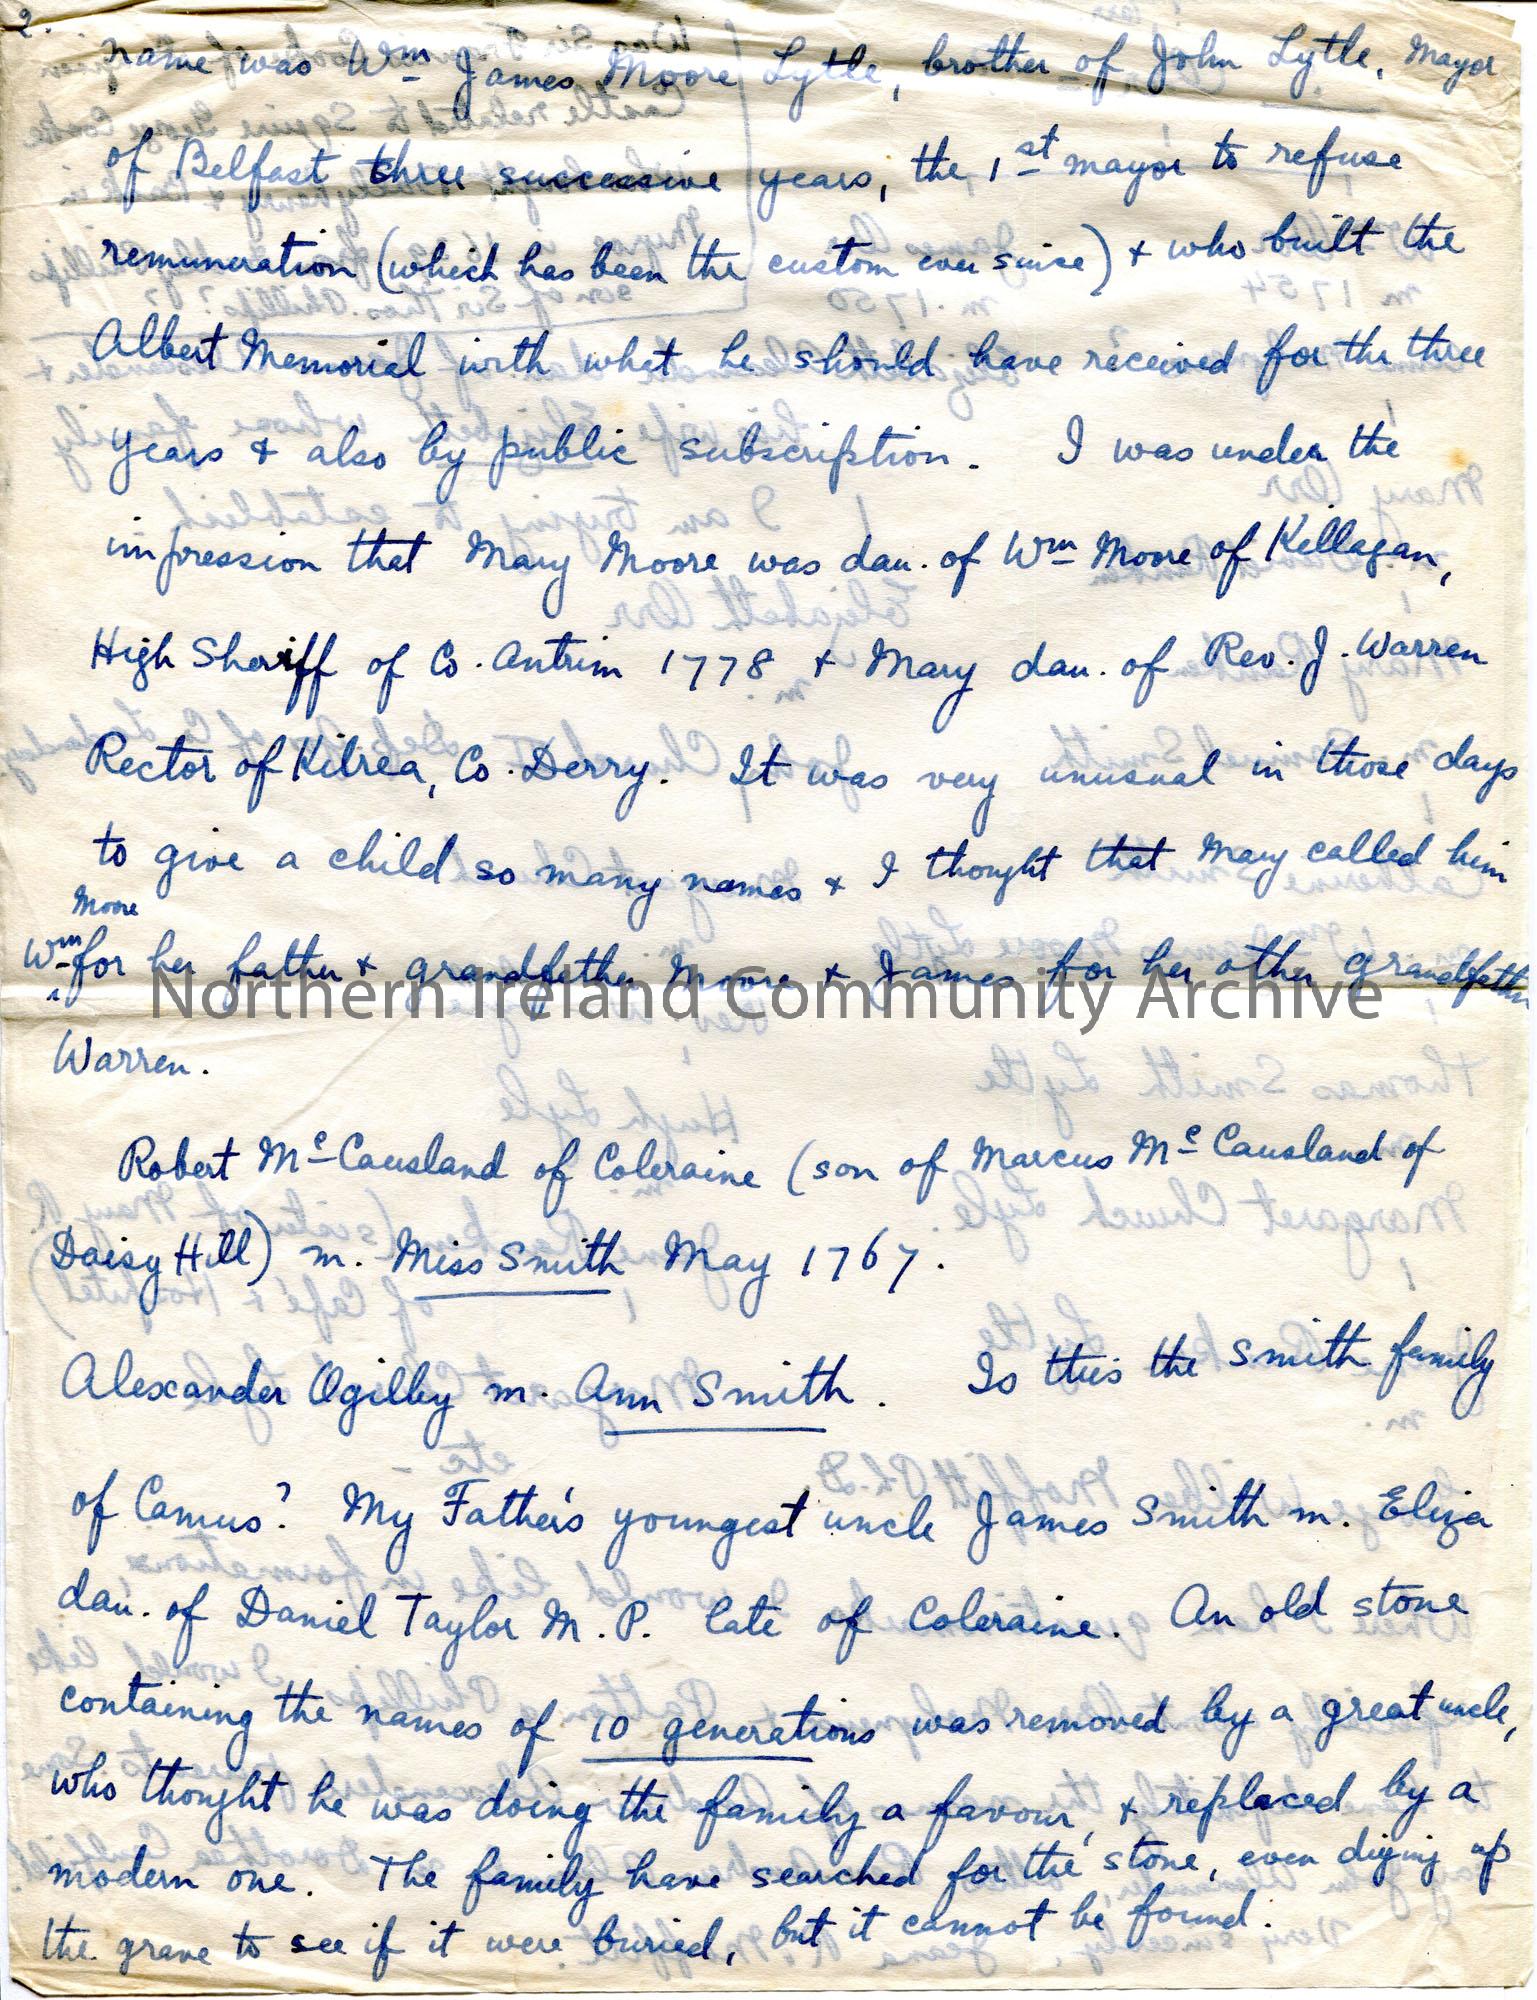 2.
name was Wm James Moore Lytle, brother of John Lytle, Mayor
of Belfast three successive years, the 1st mayor to refuse
remuneration (which has been the custom ever since) & who built the
Albert Memorial with what he should have received for the three
years & also by public subscription. I was under the
impression that Mary Moore was dau. of Wm Moore of Killagan,
High Sheriff of Co. Antrim 1778 & Mary dau. of Rev. J. Warren
Rector of Kilrea, Co. Derry. It was very unusual in those days
to give a child so many names & I thought that Mary called him
Moore
Wm for her father & grandfather Moore & James for her other grandfather
Northern Ireland Community Archive
Warren.
Robert Mc Causland of Coleraine (son of Marcus Mc Causland of
Daisy Hill) m. Miss Smith May 1767.
Alexander Ogilby m. Ann Smith. Is this the Smith family
of Camus? My Father's youngest uncle James Smith m. Eliza
dau. of Daniel Taylor M.P. late of Coleraine. An old stone
containing the names of 10 generations was removed by a great uncle,
who thought he was doing the family a favour, & replaced by a
modern one. The family have searched for the stone, even diging up
the grave to see if it were buried, but it cannot be found.